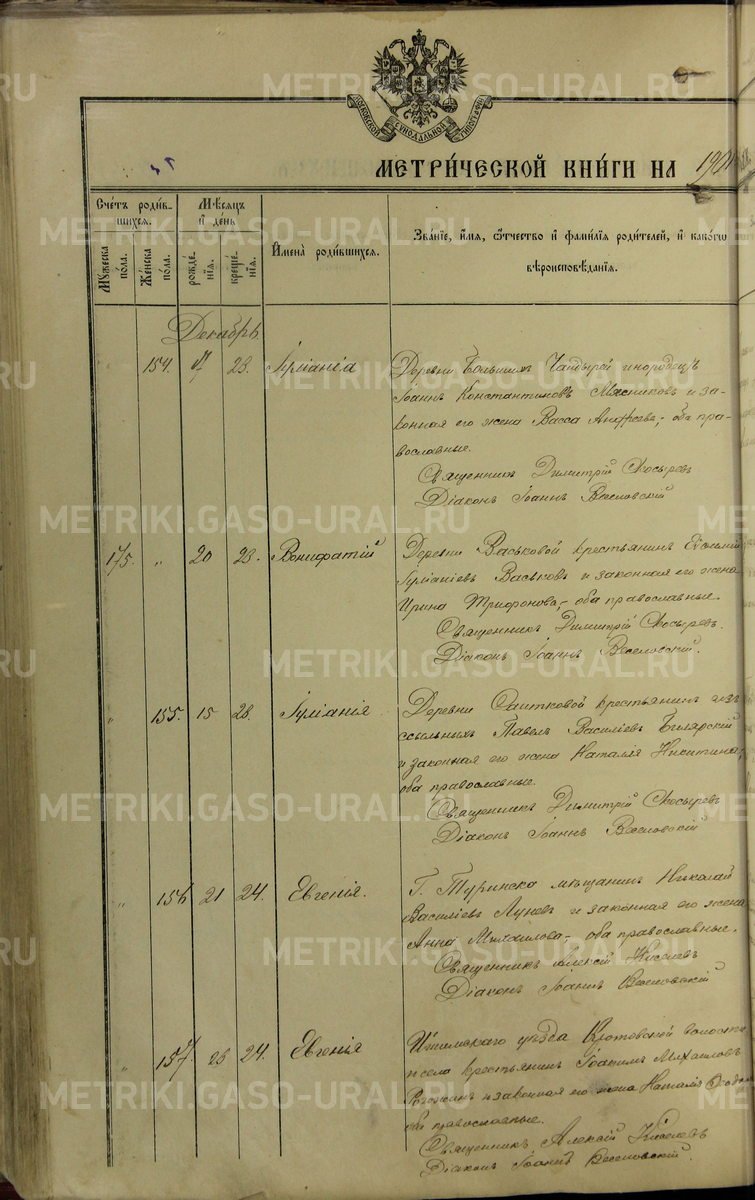 МОСКОВСКОЙ СѴНОДАЛЬНОЙ ТИПОГРАФІИ
МЕТРИ́ЧЕСКОЙ КНИ́ГИ НА 1901
Сче́тъ роди́в-
шихся.
Му́жеска
по́ла.
Же́нска
по́ла.
Мѣ́сяцъ
и҆ де́нь
рожде́-
нїѧ.
креще́-
нїѧ.
И҆мена̀ роди́вшихся.
Зва́нїе, и҆́мѧ, ѻ҆́тчество и҆ фами́лїѧ роди́телей, и҆ како́гѡ
вѣроисповѣ́данїѧ.
Декабрь
154. 17 23. Іуліанія
Деревни Большихъ инородецъ
Іоаннъ Константиновъ Мясниковъ и за-
конная его жена Васса Андреева,- оба пра-
вославные.
Священникъ Димитрій Скосыревъ
Діаконъ Іоаннъ Веселовскій
175. " 20 23. Вонифатій
Деревни Васьковой крестьянинъ
Іуліаніевъ Васьковъ и законная его жена
Ирина Трифонова,- оба православные.
Священникъ Димитрій Скосыревъ.
Діаконъ Іоаннъ Веселовскій.
" 155. 15 23. Іуліанія
Деревни крестьянинъ изъ
ссыльныхъ Павелъ Василіевъ Билярскій
и законная его жена Наталія Никитина,
оба православные.
Священникъ Димитрій Скосыревъ
Діаконъ Іоаннъ Веселовскій
" 156 21 24. Евгенія.
Г. Туринска мѣщанинъ Николай
Василіевъ Луневъ и законная его жена
Анна Михаилова,- оба православные.
Священникъ Алексій Киселевъ
Діаконъ Іоаннъ Веселовскій
" 157 23 24. Евгенія
Ишимскаго уѣзда Кротовской волости
и села крестьянинъ Іоакимъ Михаиловъ
и законная его жена Наталія
оба православные.
Священникъ Алексій Киселевъ
Діаконъ Іоаннъ Веселовскій.
METRIKI.GASO-URAL.RU